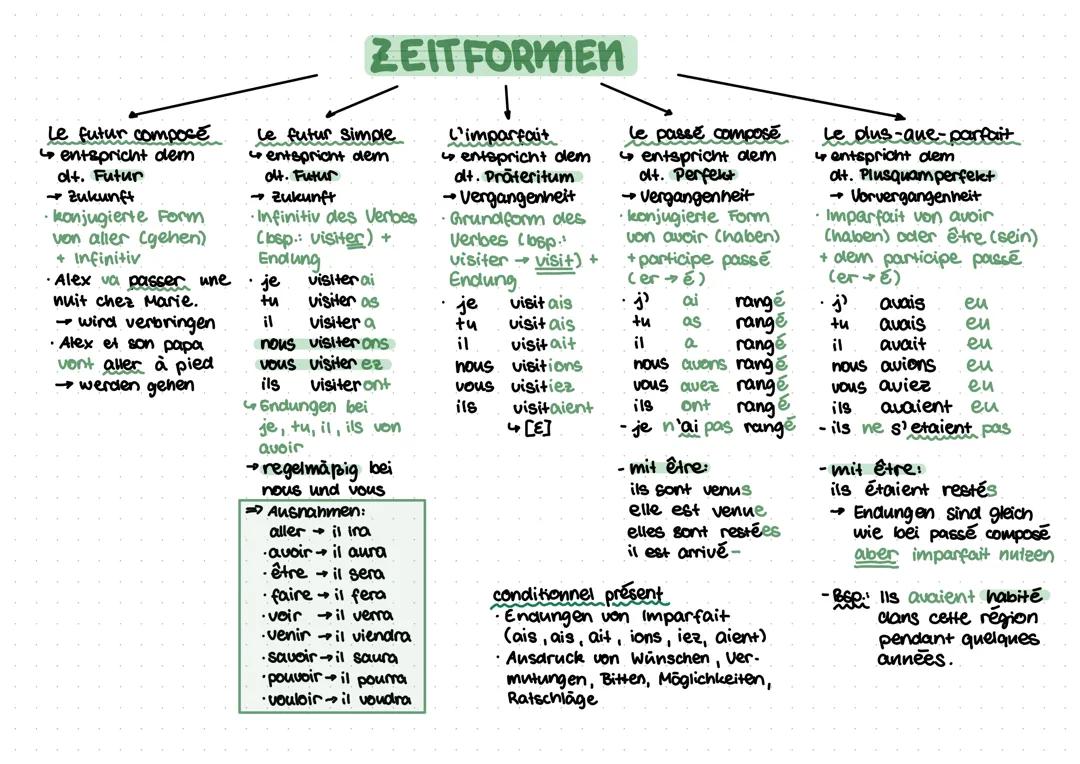 ZEITFORMEN
Le futur composé
↳ entspricht dem
dt. Futur
→ Zukunft
· konjugierte Form
von aller (gehen)
+ Infinitiv
· Alex va passer une
nuit chez Marie.
→ wird verbringen
· Alex et son papa
vont aller à pied
→ werden gehen
Le futur simple
↳ entspricht dem
dt. Futur
→ Zukunft
· Infinitiv des Verbes
(bsp.: visiter) +
Endung
· je visiterai
tu visiteras
il visitera
nous visiterons
vous visiterez
ils visiteront
↳ Endungen bei
je, tu, il, ils von
avoir
→ regelmäßig bei
nous und vous
⇒ Ausnahmen:
aller → il ira
· avoir → il aura
· être → il sera
· faire → il fera
· voir → il verra
· venir → il viendra
· savoir → il saura
· pouvoir → il pourra
· vouloir → il voudra
L'imparfait
↳ entspricht dem
dt. Präteritum
→ Vergangenheit
· Grundform des
Verbes (bsp.:
visiter → visit) +
Endung
· je visitais
tu visitais
il visitait
nous visitions
vous visitiez
ils visitaient
↳ [Ɛ]
Le passé composé
↳ entspricht dem
dt. Perfekt
→ Vergangenheit
· konjugierte Form
von avoir (haben)
+ participe passé
(er → é)
· j' ai rangé
tu as rangé
il a rangé
nous avons rangé
vous avez rangé
ils ont rangé
- je n'ai pas rangé
- mit être:
ils sont venus
elle est venue
elles sont restées
il est arrivé -
Le plus-que-parfait
↳ entspricht dem
dt. Plusquamperfekt
→ Vorvergangenheit
· Imparfait von avoir
(haben) oder être (sein)
+ dem participe passé
(er → é)
· j' avais eu
tu avais eu
il avait eu
nous avions eu
vous aviez eu
ils avaient eu
- ils ne s'etaient pas
- mit être:
ils étaient restés
→ Endungen sind gleich
wie bei passé composé
aber imparfait nutzen
- Bsp.: Ils avaient habité
dans cette région
pendant quelques
années.
conditionnel présent
· Endungen von Imparfait
(ais, ais, ait, ions, iez, aient)
· Ausdruck von Wünschen, Ver-
mutungen, Bitten, Möglichkeiten,
Ratschläge